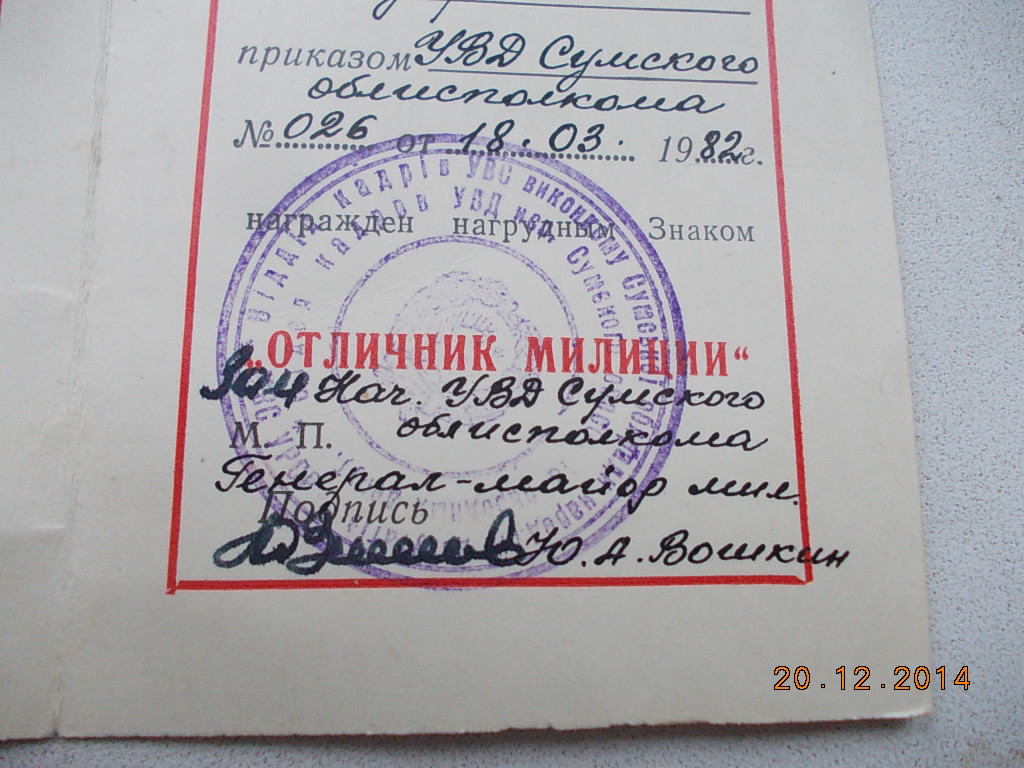 приказом УВД Сумского
облисполкома
№ 026 от 18.03. 1982 г.
награжден нагрудным Знаком
„ОТЛИЧНИК МИЛИЦИИ“
Зам Нач. УВД Сумского
М. П. облисполкома
Генерал-майор мил.
Подпись
Ю. А. Вошкин
Відділ кадрів УВС виконкому Сумської обласної
кадров УВД исп. Сумской
20.12.2014